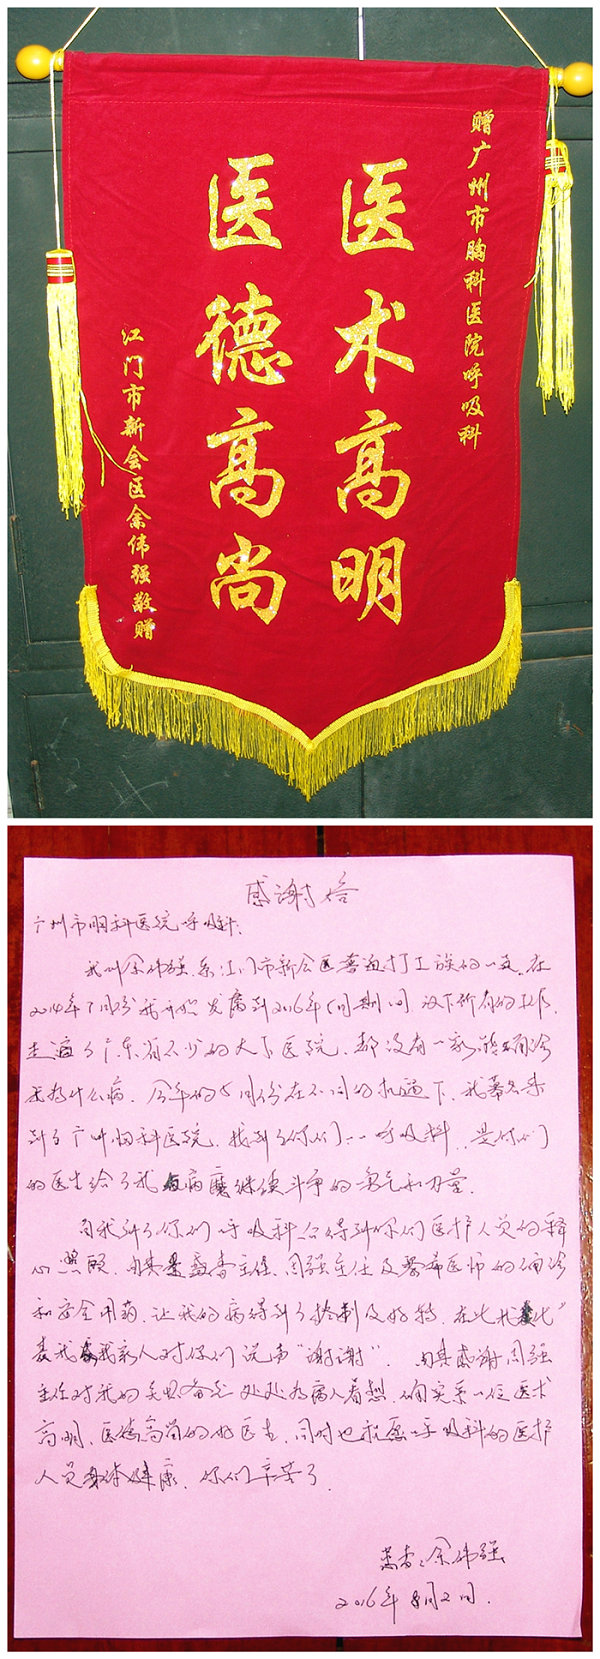 赠广州市胸科医院呼吸科
医术高明
医德高尚
江门市新会区余伟强敬赠
感谢信
广州市胸科医院呼吸科:
我叫余伟强,系江门市新会区普通打工族的一员,在
2014年7月份我开始发病到2016年5月期间,放下所有的工作,
走遍了广东省不少的大下医院,都没有一家能确诊
我为什么病。今年的5月份在不同的机遇下,我慕名来
到了广州胸科医院,找到了你们呼吸科,是你们
的医生给了我与病魔继续斗争的勇气和力量。
自我到了你们呼吸科会得到你们医护人员的释
心照顾,由其是 主任、周强主任及黎希医师的确诊
和安全用药,让我的病得到了控制及好转,在此我
我家人对你们说声“谢谢”。由其感谢周强
主任对我的关照备至,处处为病人着想,确实系一位医术
高明,医德高尚的好医生,同时也祝愿呼吸科的医护
人员身体健康,你们辛苦了。
患者:余伟强
2016年8月2日.